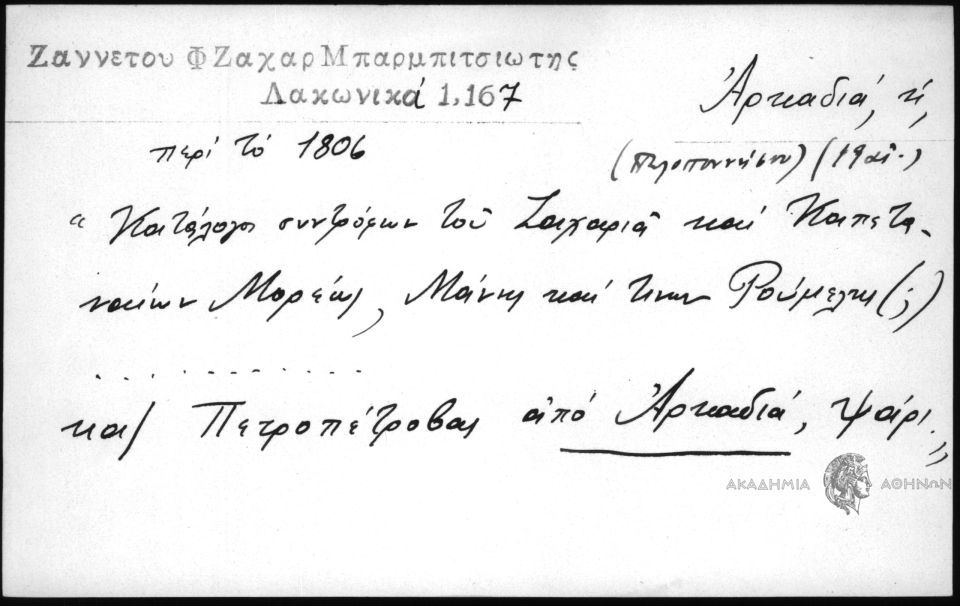 Ζαννετου Φ Ζαχαρ Μπαρμπιτσιωτης
Λακωνικά 1,167
Ἀρκαδιά, ἡ,
περί τό 1806
(Πελοποννήσου) (19 αἰ.)
“ Κατάλογοι συντρόφων τοῦ Ζαχαριᾶ καί Καπετα-
ναίων Μορέως, Μάνης καί τινων Ρούμελης (;)
. . . . . . . . . . . . . .
κα) Πετροπέτροβας ἀπό Ἀρκαδιά, Ψάρι „
ΑΚΑΔΗΜΙΑ ΑΘΗΝΩΝ